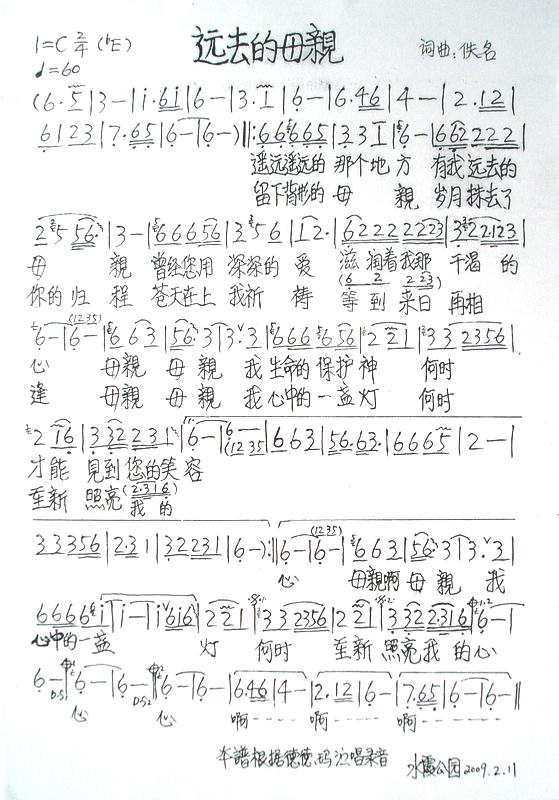 远去的母親
1=C 2/4 (bE)
♩=60
词曲:佚名
(6·5|3-|i·6i|6-|3·1|6-|6·46|4-|2·12|
6123|7·65|6-|6-)‖:66665|33 1|6-|662222|
遥远遥远的 那个地 方 有我远去的
留下背影的 母 親 岁月抹去了
2 5 56·|3-|666656|3 5 6|1 2·|622222223|322123|
母 親 曾经您用 深深的 爱 滋润着我那 干渴 的
你的 归 程 苍天在上 我祈 祷 等到来日 再相
(6 2 2 23)
6-|6-(1235)|663|56·3|3 3·3|6666 656|2 21|33 2356|
心 母親 母親 我生命的保护神 何时
逢 母親 母親 我心中的一盏灯 何时
2 16|332231|6-|6-(1235|663|56·63·|66665|2-|
才能 見到您的笑 容
重新 照亮(2·316) 我的
33356|2·31|32231|6-):‖6-|6-(1235)|663|56·3|3·3|
心 母親啊 母親 我
6666i|i-|i 6i6|2 21|33 2356|2 21|3322·316|6-|
心中的一盏 灯 何时 重新 照亮我 的心
6-|6-|6-|6-|6-|6·46|4-|2·12|6-|7·65|6-|6-‖
D.S1 D.S2
心 心 啊---- 啊---- 啊------
本譜根据德德玛演唱录音
水霞公园2009.2.11